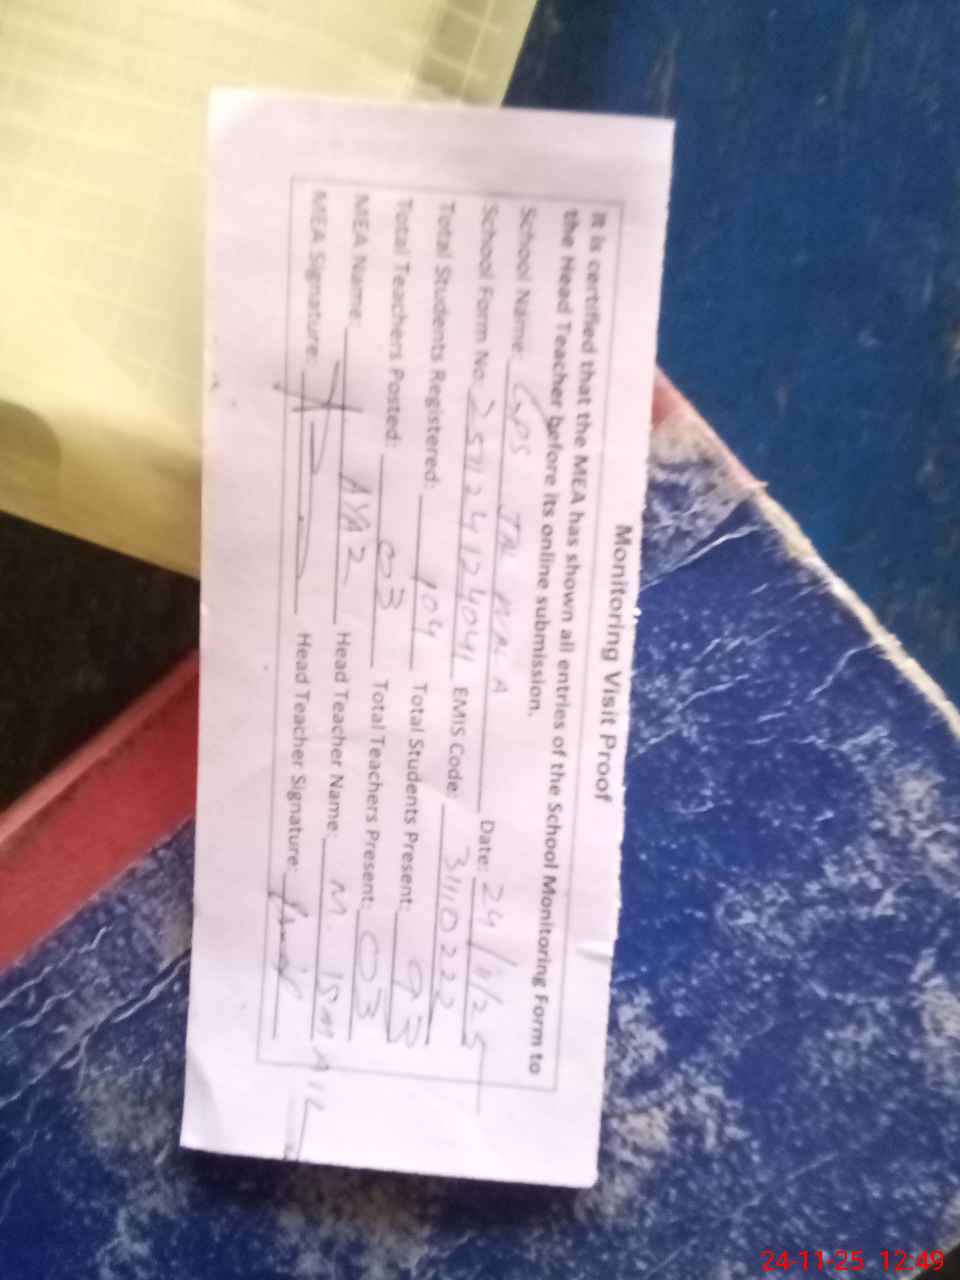 Monitoring Visit Proof
It is certified that the MEA has shown all entries of the School Monitoring Form to
the Head Teacher before its online submission.
School Name: GPS Date: 24/11/25
School Form No: EMIS Code: 31110222
Total Students Registered: 104 Total Students Present: 93
Total Teachers Posted: 03 Total Teachers Present: 03
MEA Name: AYAZ Head Teacher Name: M. ISMAIL
MEA Signature: Head Teacher Signature:
24-11-25 12:49